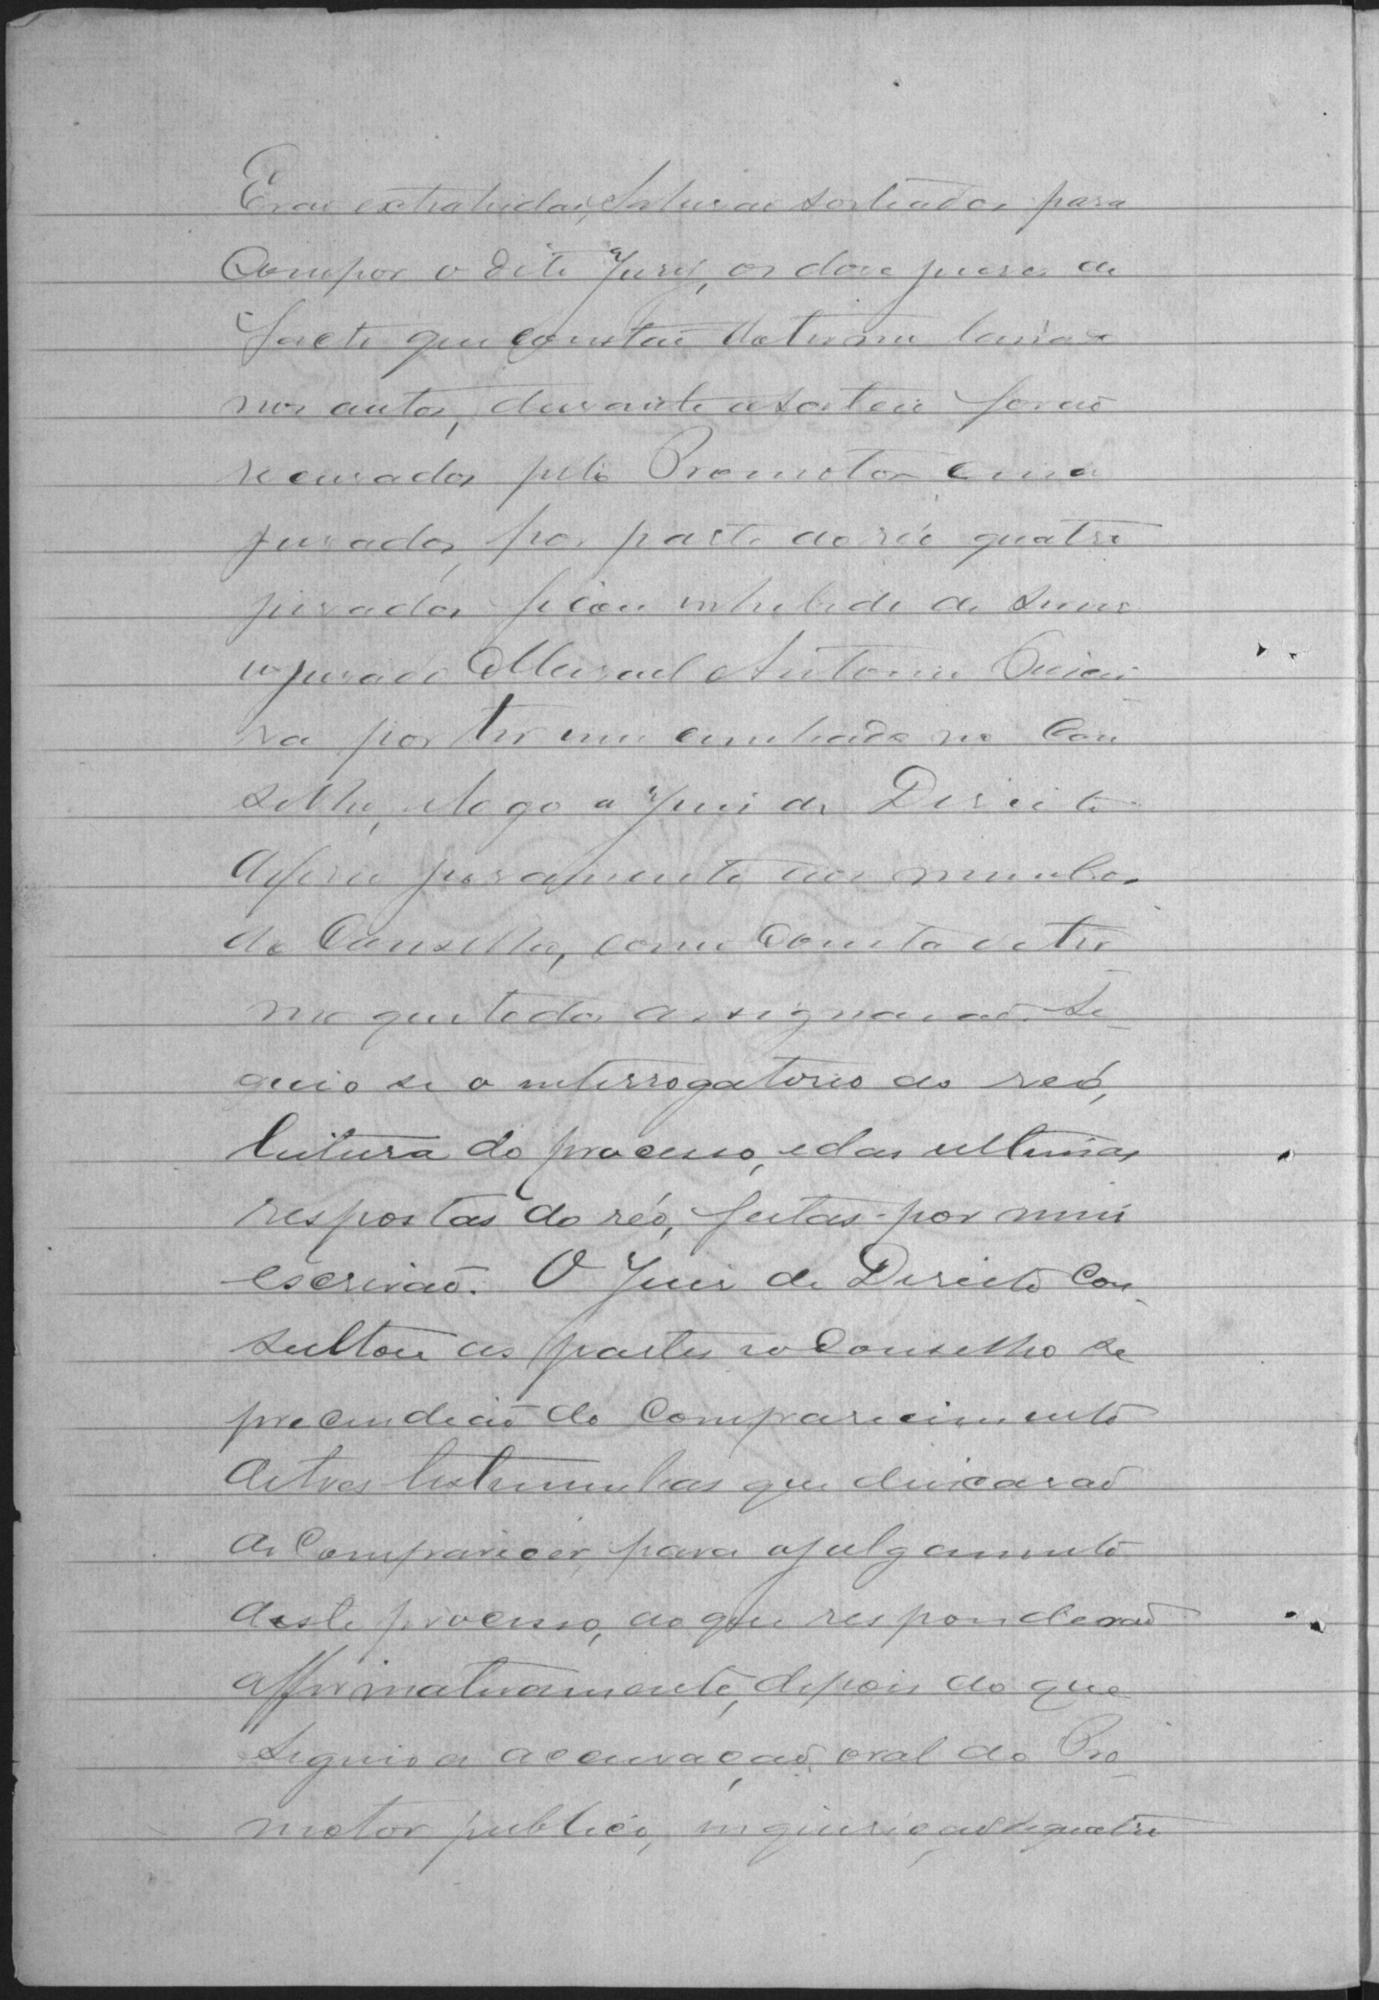 Erão extrahidas, e sahirão sorteados para
compor o dito Jury, os doze juizes de
facto que constão do termo
nos autos, durante o sorteio forão
recusados pelo Promotor cinco
jurados, por parte do réo quatro
jurados ficou inhibido de servir
o jurado Manoel Antonio Oliviei-
ra por ter um cunhado no Con
selho, e logo o Juiz de Direito
deferio juramento aos membros
do Conselho, como consta do ter
mo que todos assignarão. Se-
guio se o interrogatorio do reó,
leitura do processo, e das ultimas
respostas do réo, feitas por mim
escrivão. O Juiz de Direito con-
sultou as partes e o Conselho se
precindião do comparecimento
de tres testemunhas que deixarão
de comparecer, para o julgamento
deste processo, ao que responderão
affirmativamente, depois do que
seguio a accusação oral do Pro-
motor publico, inquirição de quatro